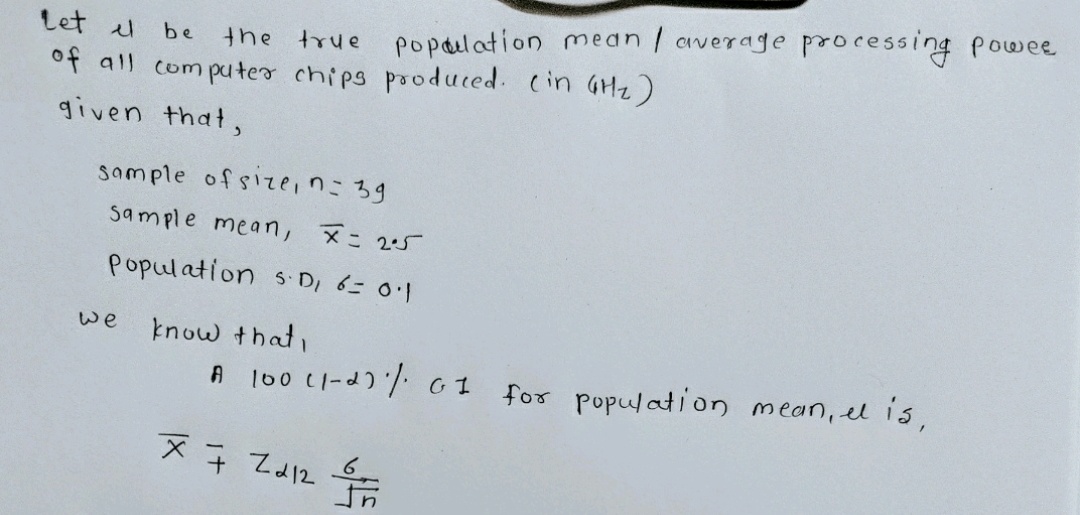 Let μ be the true population mean / average processing power
of all computer chips produced. (in GHz)
given that,
sample of size, n = 39
sample mean, x̄ = 2.5
population S.D, σ = 0.1
we know that,
A 100 (1-α) % CI for population mean, μ is,
x̄ ∓ Zα/2 σ/√n